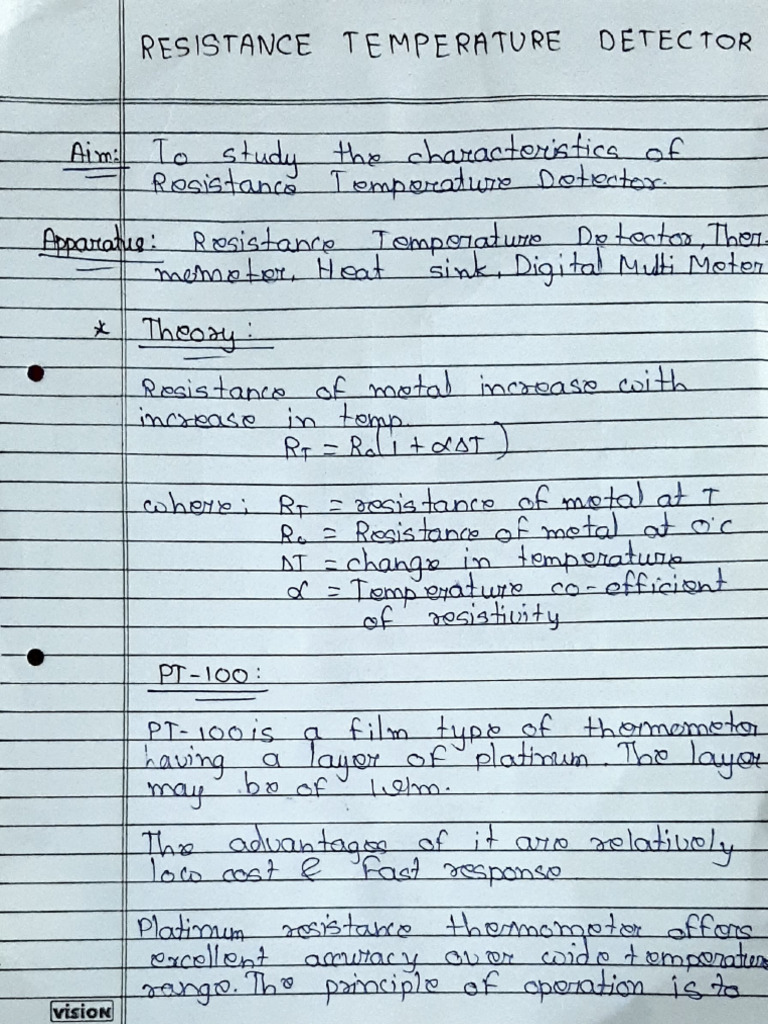 RESISTANCE TEMPERATURE DETECTOR
Aim: To study the characteristics of
Resistance Temperature Detector.
Apparatus: Resistance Temperature Detector, Ther-
mometer, Heat sink, Digital Multi Meter
* Theory:
Resistance of metal increase with
increase in temp.
RT = Ro(1 + αΔT)
where; RT = resistance of metal at T
Ro = Resistance of metal at 0°C
ΔT = change in temperature
α = Temperature co-efficient
of resistivity
PT-100:
PT-100 is a film type of thermometer
having a layer of platinum. The layer
may be of
The advantages of it are relatively
low cost & Fast response
Platinum resistance thermometer offers
excellent accuracy over wide temperature
range. The principle of operation is to
vision